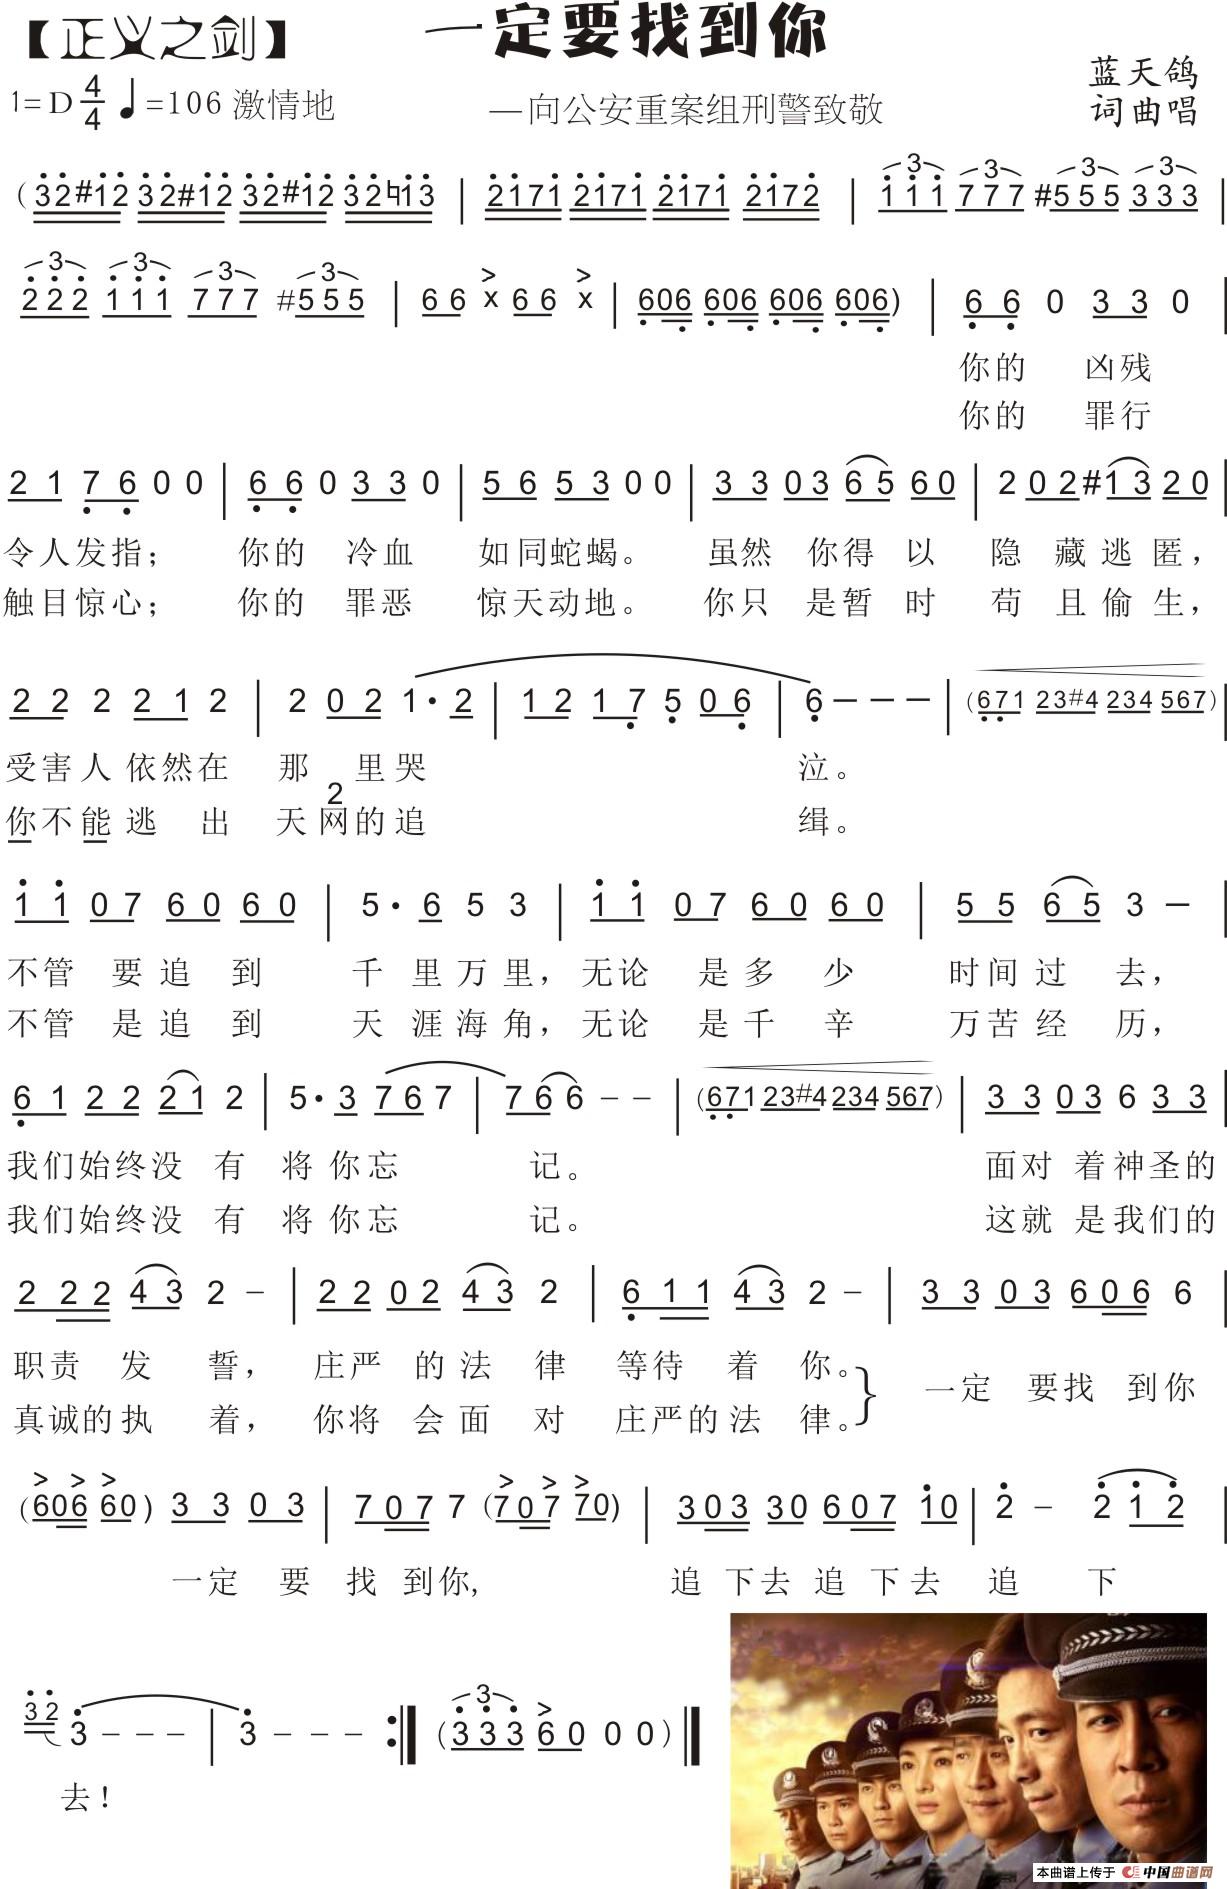 【正义之剑】
一定要找到你
1=D 4/4 ♩=106 激情地
—向公安重案组刑警致敬
蓝天鸽
词曲唱
(32#12 32#12 32#12 32♮13 | 2171 2171 2171 2172 | 111 777 #555 333 |
222 111 777 #555 | 66 x 66 x | 606 606 606 606) | 66 0 33 0 |
你的 凶残
你的 罪行
21 76 0 0 | 66 0 33 0 | 56 53 0 0 | 33 03 65 60 | 2 02 #13 20 |
令人发指; 你的 冷血 如同蛇蝎。 虽然 你得 以 隐 藏 逃 匿,
触目惊心; 你的 罪恶 惊天动地。 你只 是暂 时 苟 且 偷 生,
22 2 21 2 | 2 02 1· 2 | 12 17 5 06 | 6 — — — | (671 23#4 234 567) |
受害人 依然在 那 里哭 泣。
2
你不能 逃 出 天网的追 缉。
11 07 60 60 | 5· 6 5 3 | 11 07 60 60 | 55 65 3 — |
不管 要 追 到 千 里 万 里, 无论 是 多 少 时间 过 去,
不管 是 追 到 天 涯 海 角, 无论 是 千 辛 万苦 经 历,
61 22 21 2 | 5· 3 767 | 766 — — | (671 23#4 234 567) | 33 03 6 33 |
我们始终没 有 将 你忘 记。 面对 着神圣的
我们始终没 有 将 你忘 记。 这就 是我们的
222 43 2 — | 22 02 43 2 | 611 43 2 — | 33 03 606 6 |
职责 发 誓, 庄严 的法 律 等待 着 你。
一定 要找 到你
真诚的执 着, 你将 会面 对 庄严的法 律。
(606 60) 33 03 | 707 7 (707 70) | 303 30 607 10 | 2 — 2 12 |
一定 要 找 到你, 追 下去 追 下去 追 下
32 3 — — — | 3 — — — :| (333 60 0 0) ‖
去!
本曲谱上传于 中国曲谱网